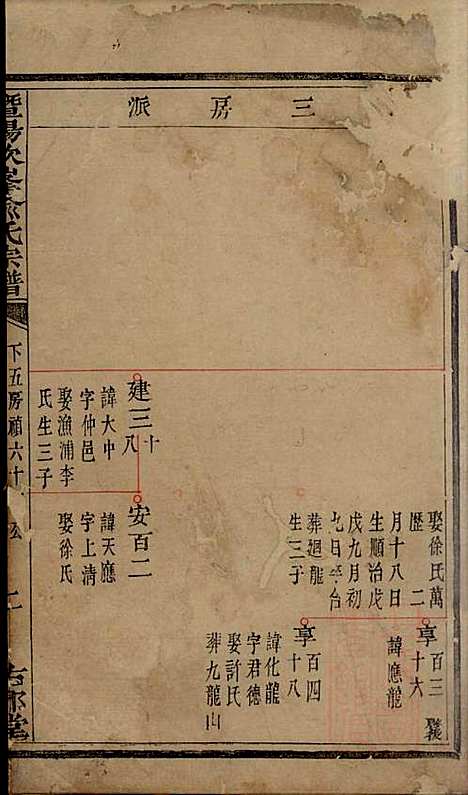 三房派
娶徐氏萬
歷　二
月十八日
生順治戊
戌九月初
七日卒台
葬廻龍
生三子
享百三十六
諱應龍
享百四十八
諱化龍
字君德
娶許氏
葬九龍山
建三十八
諱大中
字仲邑
娶漁浦李
氏生三子
安百二
諱天應
字上清
娶徐氏
暨陽次峯俞氏宗譜
下五房禎六十
公
二